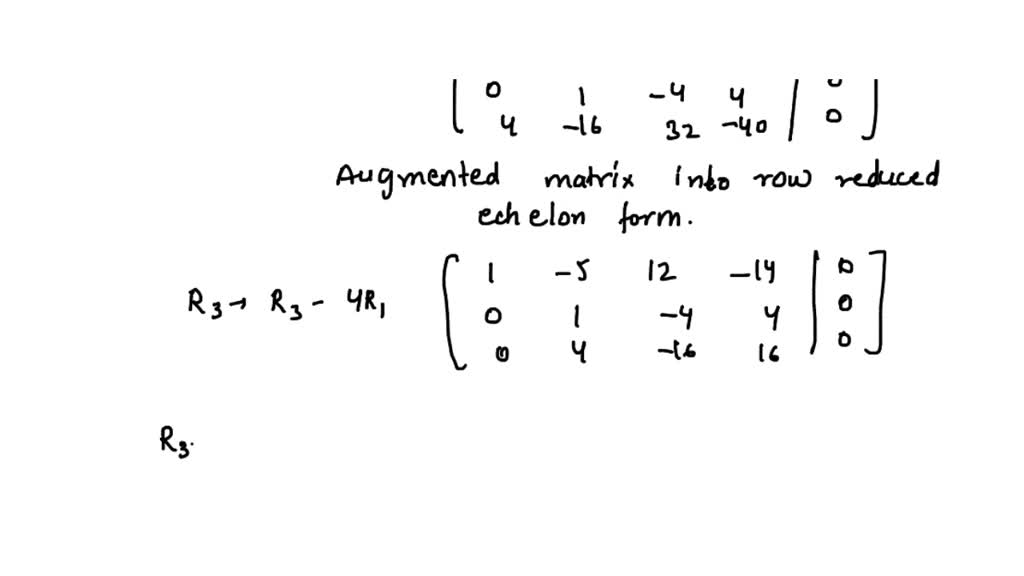 0 1 -4 4 | 0
4 -16 32 -40 | 0
Augmented matrix into row reduced
echelon form.
1 -5 12 -14 | 0
R3 → R3 - 4R1 0 1 -4 4 | 0
0 4 -16 16 | 0
R3.